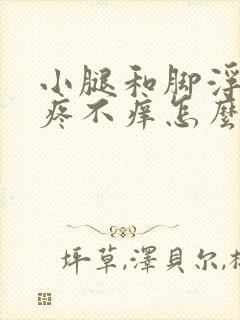 小腿和脚浮
疼不痒怎麽
坪草,澤貝尔,